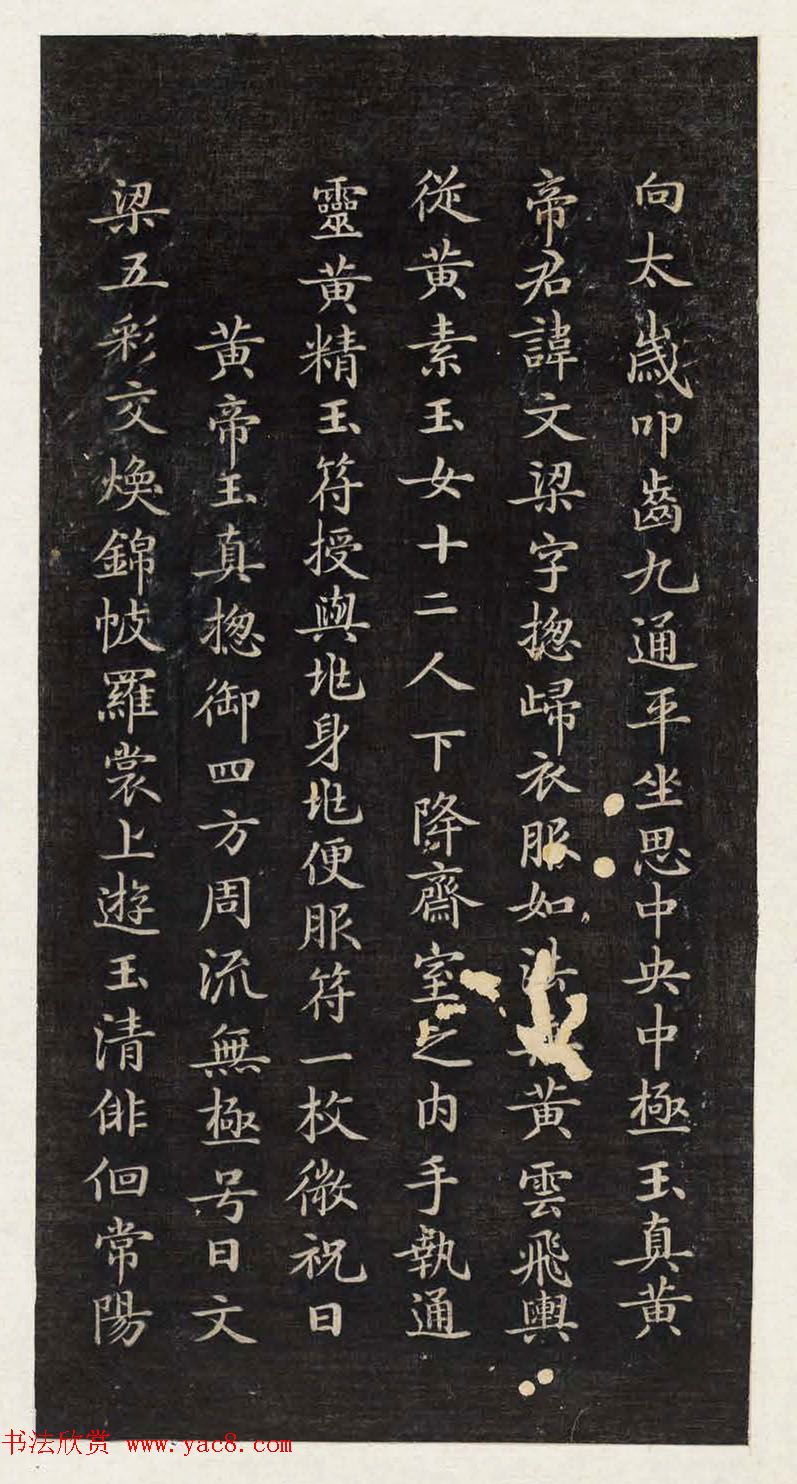 向太歲叩齒九通平坐思中央中極玉真黃
帝君諱文梁字摠歸衣服如法黃雲飛輿
從黃素玉女十二人下降齋室之内手執通
靈黃精玉符授與𡉏身𡉏便服符一枚微祝曰
黃帝玉真摠御四方周流無極号曰文
梁五彩交煥錦帔羅裳上遊玉清俳佪常陽
书法欣赏 www.yac8.com